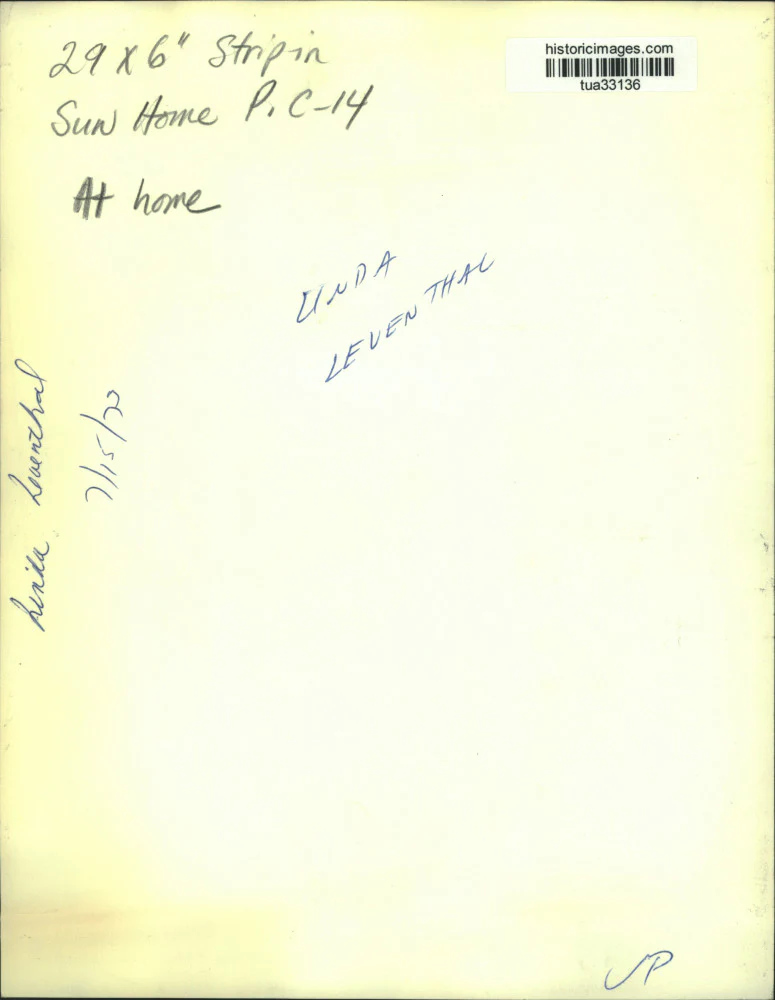 29 X 6" Strip in
Sun Home P. C-14
At home
historicimages.com
tua33136
LINDA
LEVENTHAL
Linda Leventhal
7/15/
UP